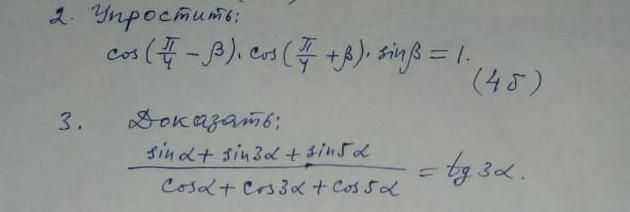 2. Упростить:
cos(π/4 - β). cos(π/4 + β). sinβ = 1.
(4б)
3. Доказать:
sinα + sin3α + sin5α
cosα + cos3α + cos5α
= tg 3α.